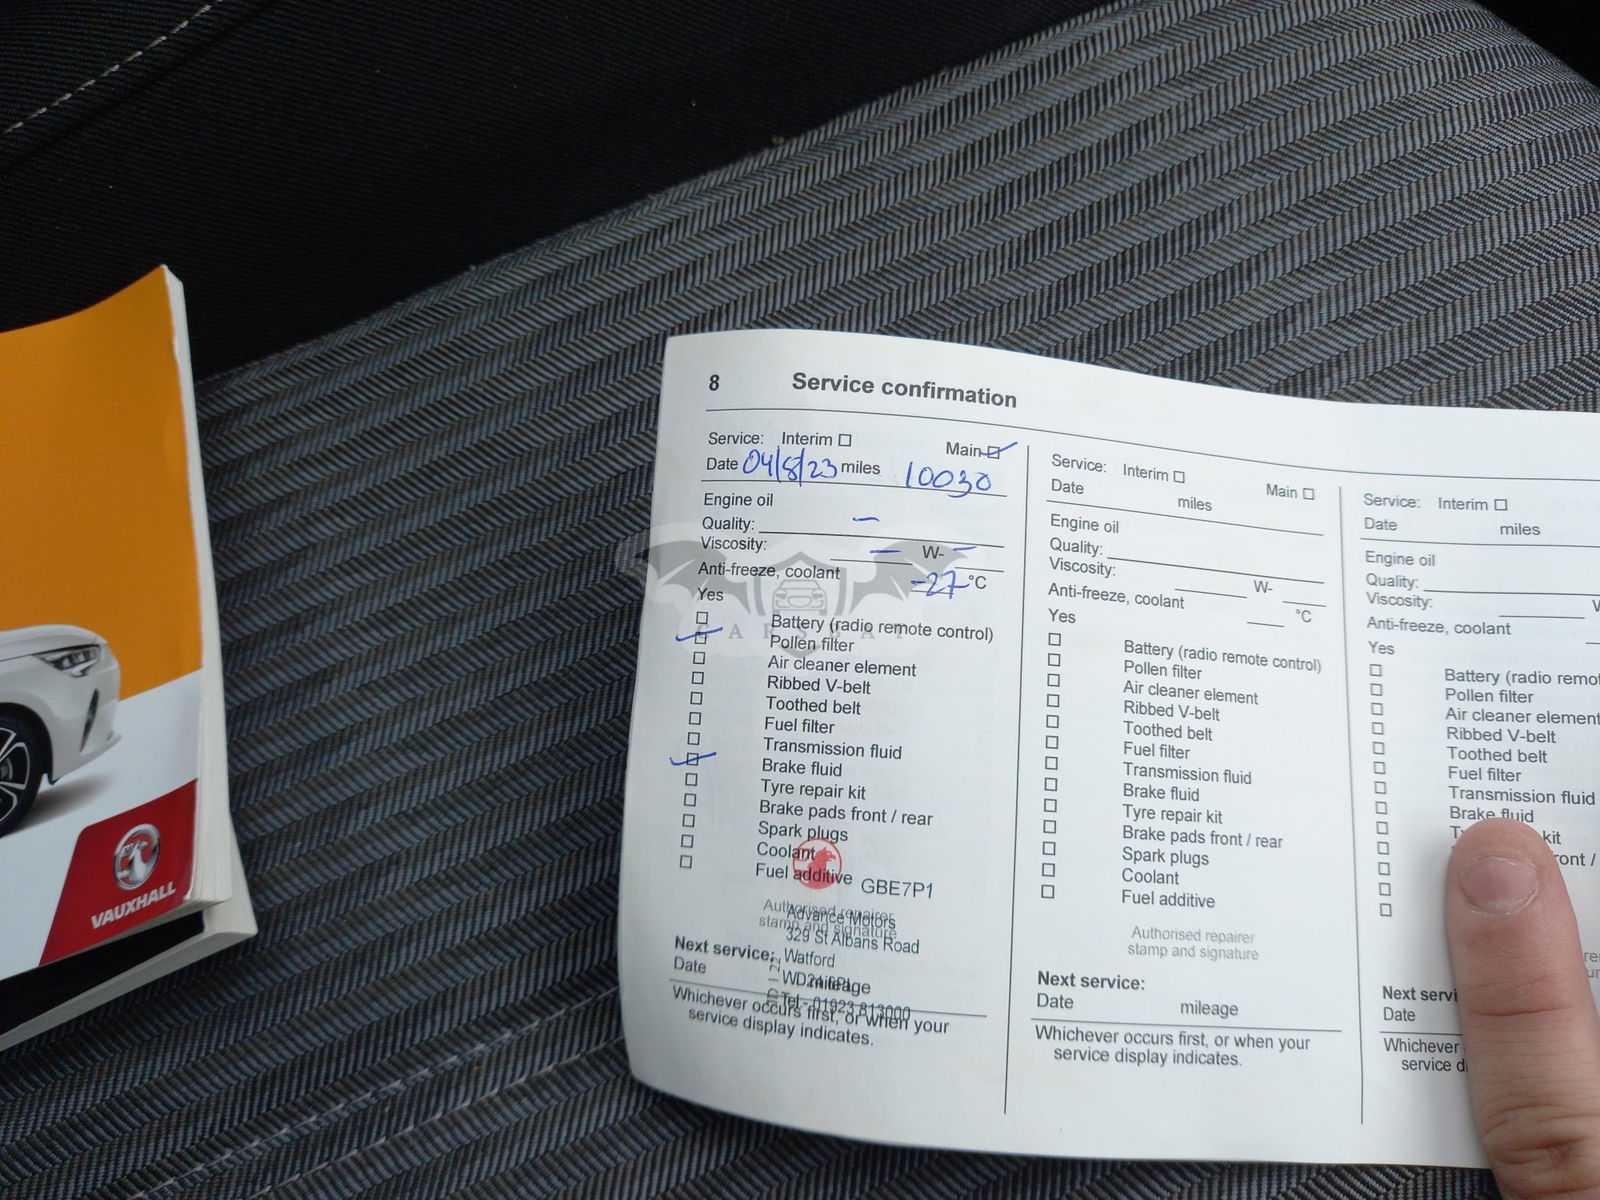 VAUXHALL
8 Service confirmation
Service: Interim ☐ Main ☑
Date 04/8/23 miles 10030
Engine oil
Quality: –
Viscosity: – W- –
Anti-freeze, coolant -27 °C
Yes
☐ Battery (radio remote control)
☑ Pollen filter
☐ Air cleaner element
☐ Ribbed V-belt
☐ Toothed belt
☐ Fuel filter
☐ Transmission fluid
☑ Brake fluid
☐ Tyre repair kit
☐ Brake pads front / rear
☐ Spark plugs
☐ Coolant
☐ Fuel additive
GBE7P1
Authorised repairer
stamp and signature
Advance Motors
329 St Albans Road
Watford
Tel:- 01923 813000
Next service:
Date mileage
Whichever occurs first, or when your
service display indicates.
Service: Interim ☐ Main ☐
Date miles
Engine oil
Quality:
Viscosity: W-
Anti-freeze, coolant °C
Yes
☐ Battery (radio remote control)
☐ Pollen filter
☐ Air cleaner element
☐ Ribbed V-belt
☐ Toothed belt
☐ Fuel filter
☐ Transmission fluid
☐ Brake fluid
☐ Tyre repair kit
☐ Brake pads front / rear
☐ Spark plugs
☐ Coolant
☐ Fuel additive
Authorised repairer
stamp and signature
Next service:
Date mileage
Whichever occurs first, or when your
service display indicates.
Service: Interim ☐
Date miles
Engine oil
Quality:
Viscosity:
Anti-freeze, coolant
Yes
☐ Battery (radio
☐ Pollen filter
☐ Air cleaner element
☐ Ribbed V-belt
☐ Toothed belt
☐ Fuel filter
☐ Transmission fluid
☐ Brake fluid
☐ kit
Next
Date
Whichever
service
CARSBAT